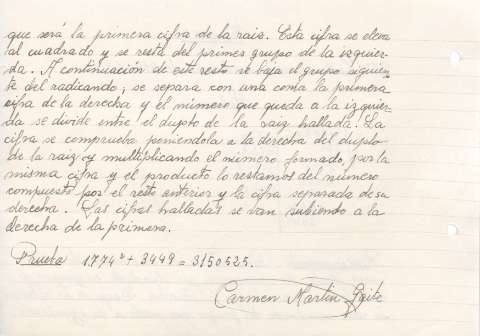 que será la primera cifra de la raiz. Esta cifra se eleva
al cuadrado y se resta del primer grupo de la izquier-
da. A continuación de este resto se baja el grupo siguien-
te del radicando; se separa con una coma la primera
cifra de la derecha y el número que queda a la izquier-
da se divide entre el duplo de la raiz hallada. La
cifra se comprueba poniéndola a la derecha del duplo
de la raiz y multiplicando el número formado, por la
misma cifra y el producto lo restamos del número
compuesto por el resto anterior y la cifra separada de su
derecha. Las cifras halladas se van subiendo a la
derecha de la primera.
Prueba 1774² + 3449 = 3150525.
Carmen Martín Gaite